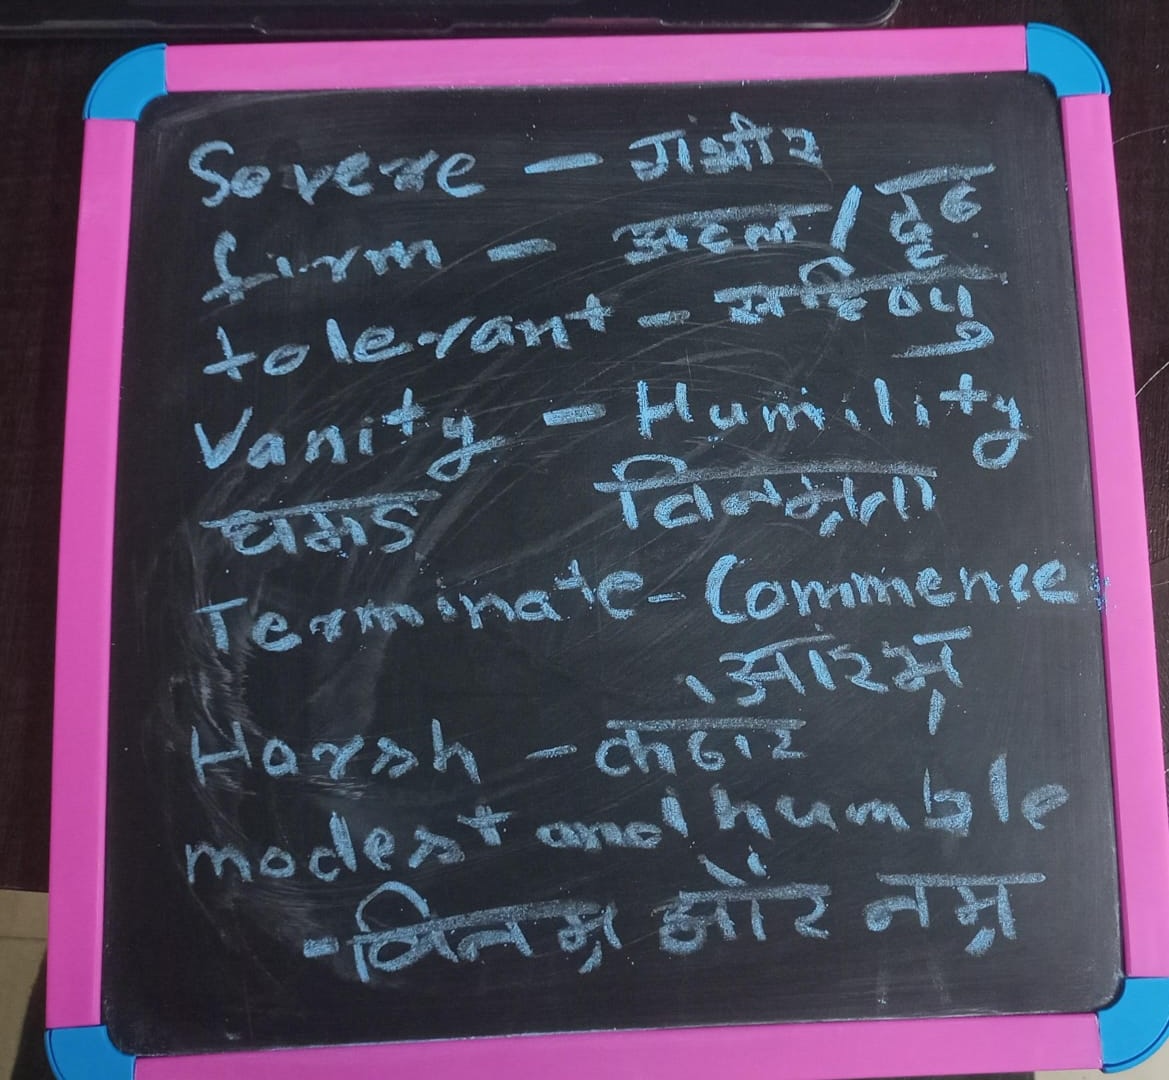 Severe - गंभीर
firm - अटल / दृढ
tolerant - सहिष्णु
Vanity - Humility
घमंड विनम्रता
Terminate - Commence
आरंभ
Harsh - कठोर
modest and humble
- विनम्र और नम्र